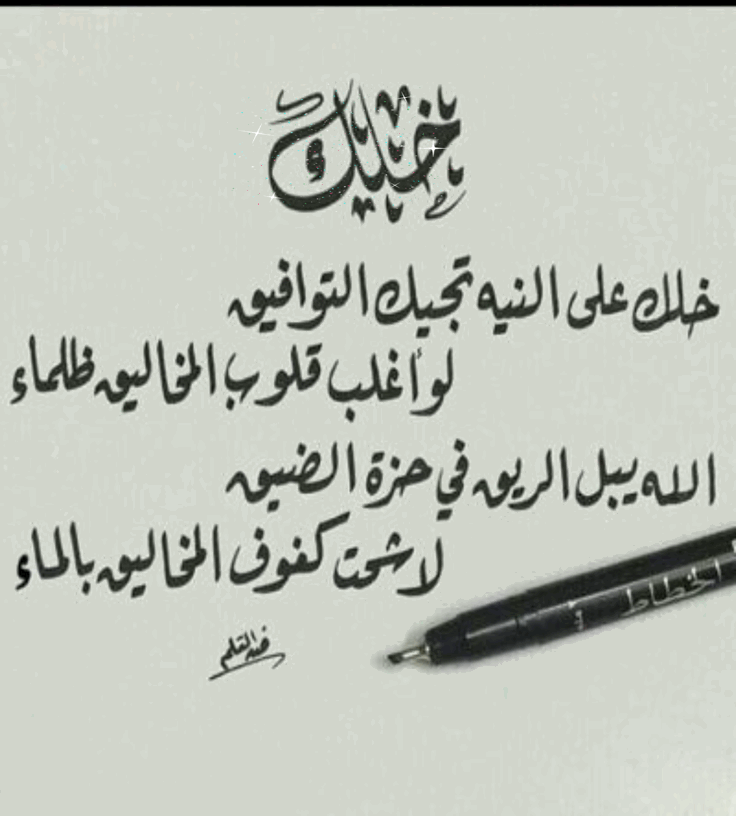 خليك
خلك على النيه تجيك التوافيق
لو أغلب قلوب المخاليق ظلماء
الله يبل الريق في حزة الضيق
لا شحت كفوف المخاليق بالماء
الخطاط